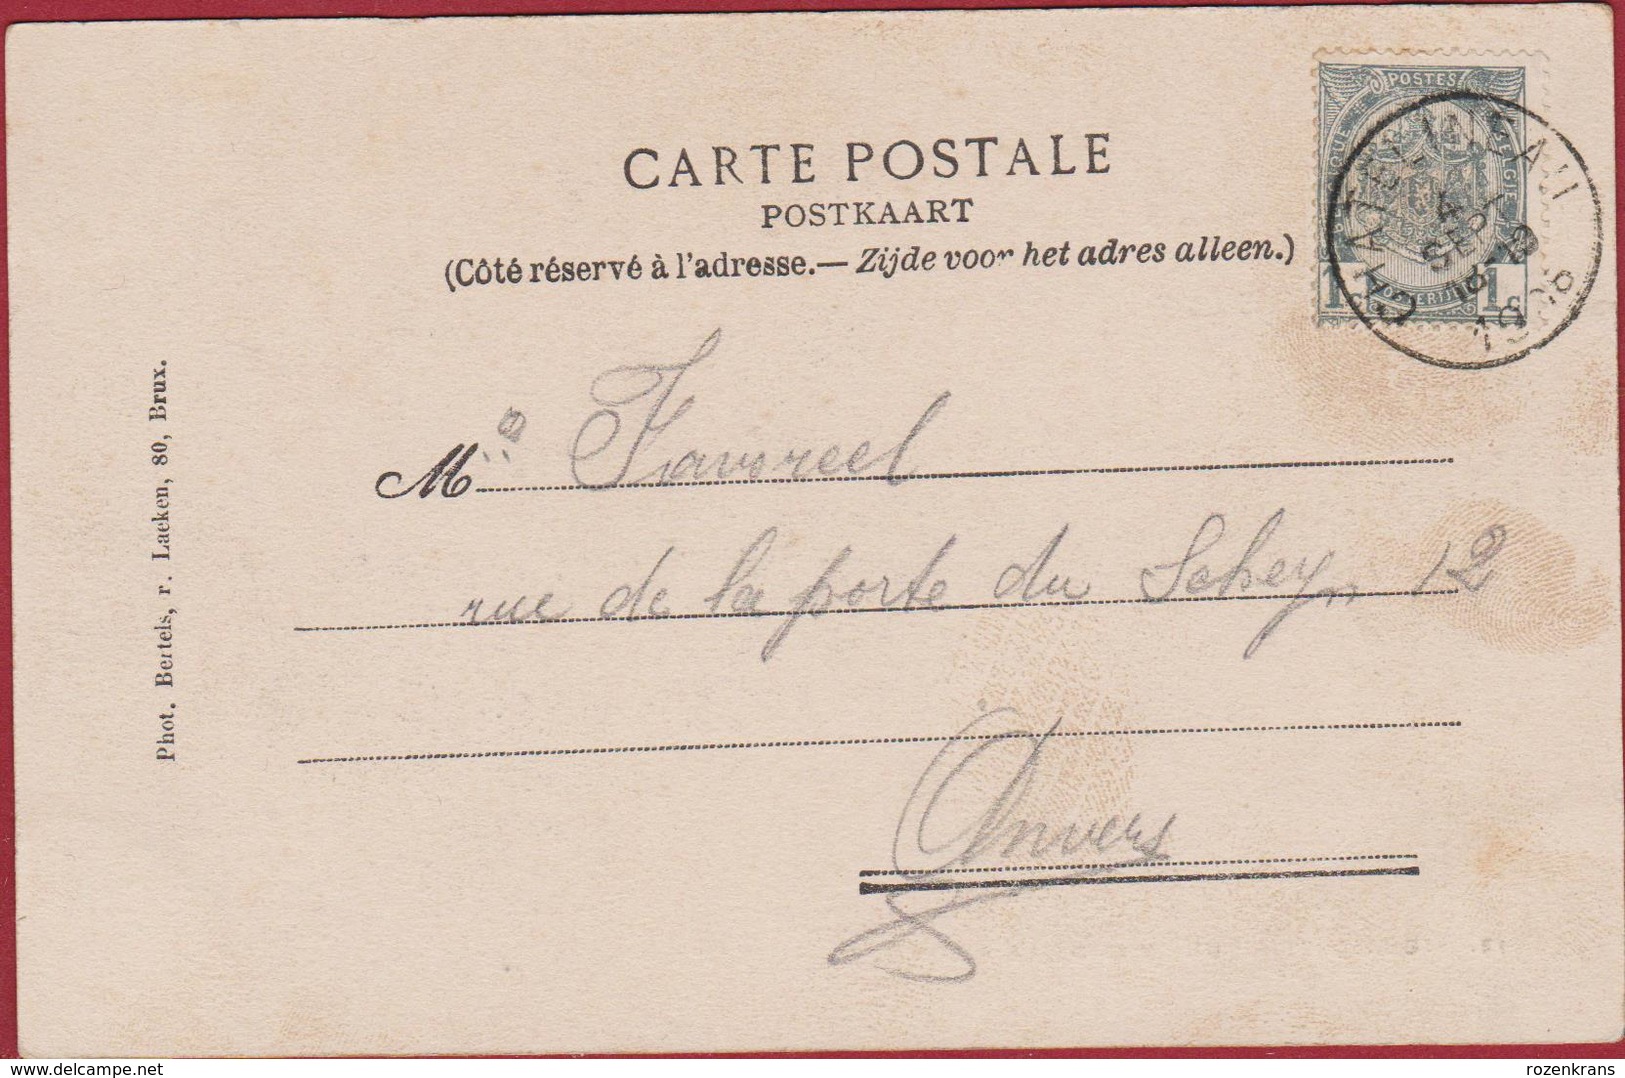 CARTE POSTALE
POSTKAART
(Côté réservé à l'adresse.— Zijde voor het adres alleen.)
POSTES
1 1
CHATELINEAU
4
SEPT
18-19
1905
Phot. Bertels, r. Laeken, 80, Brux.
M Favoreel
rue de la porte du Schey,, 12
Anvers
delcampe.net
rozenkrans